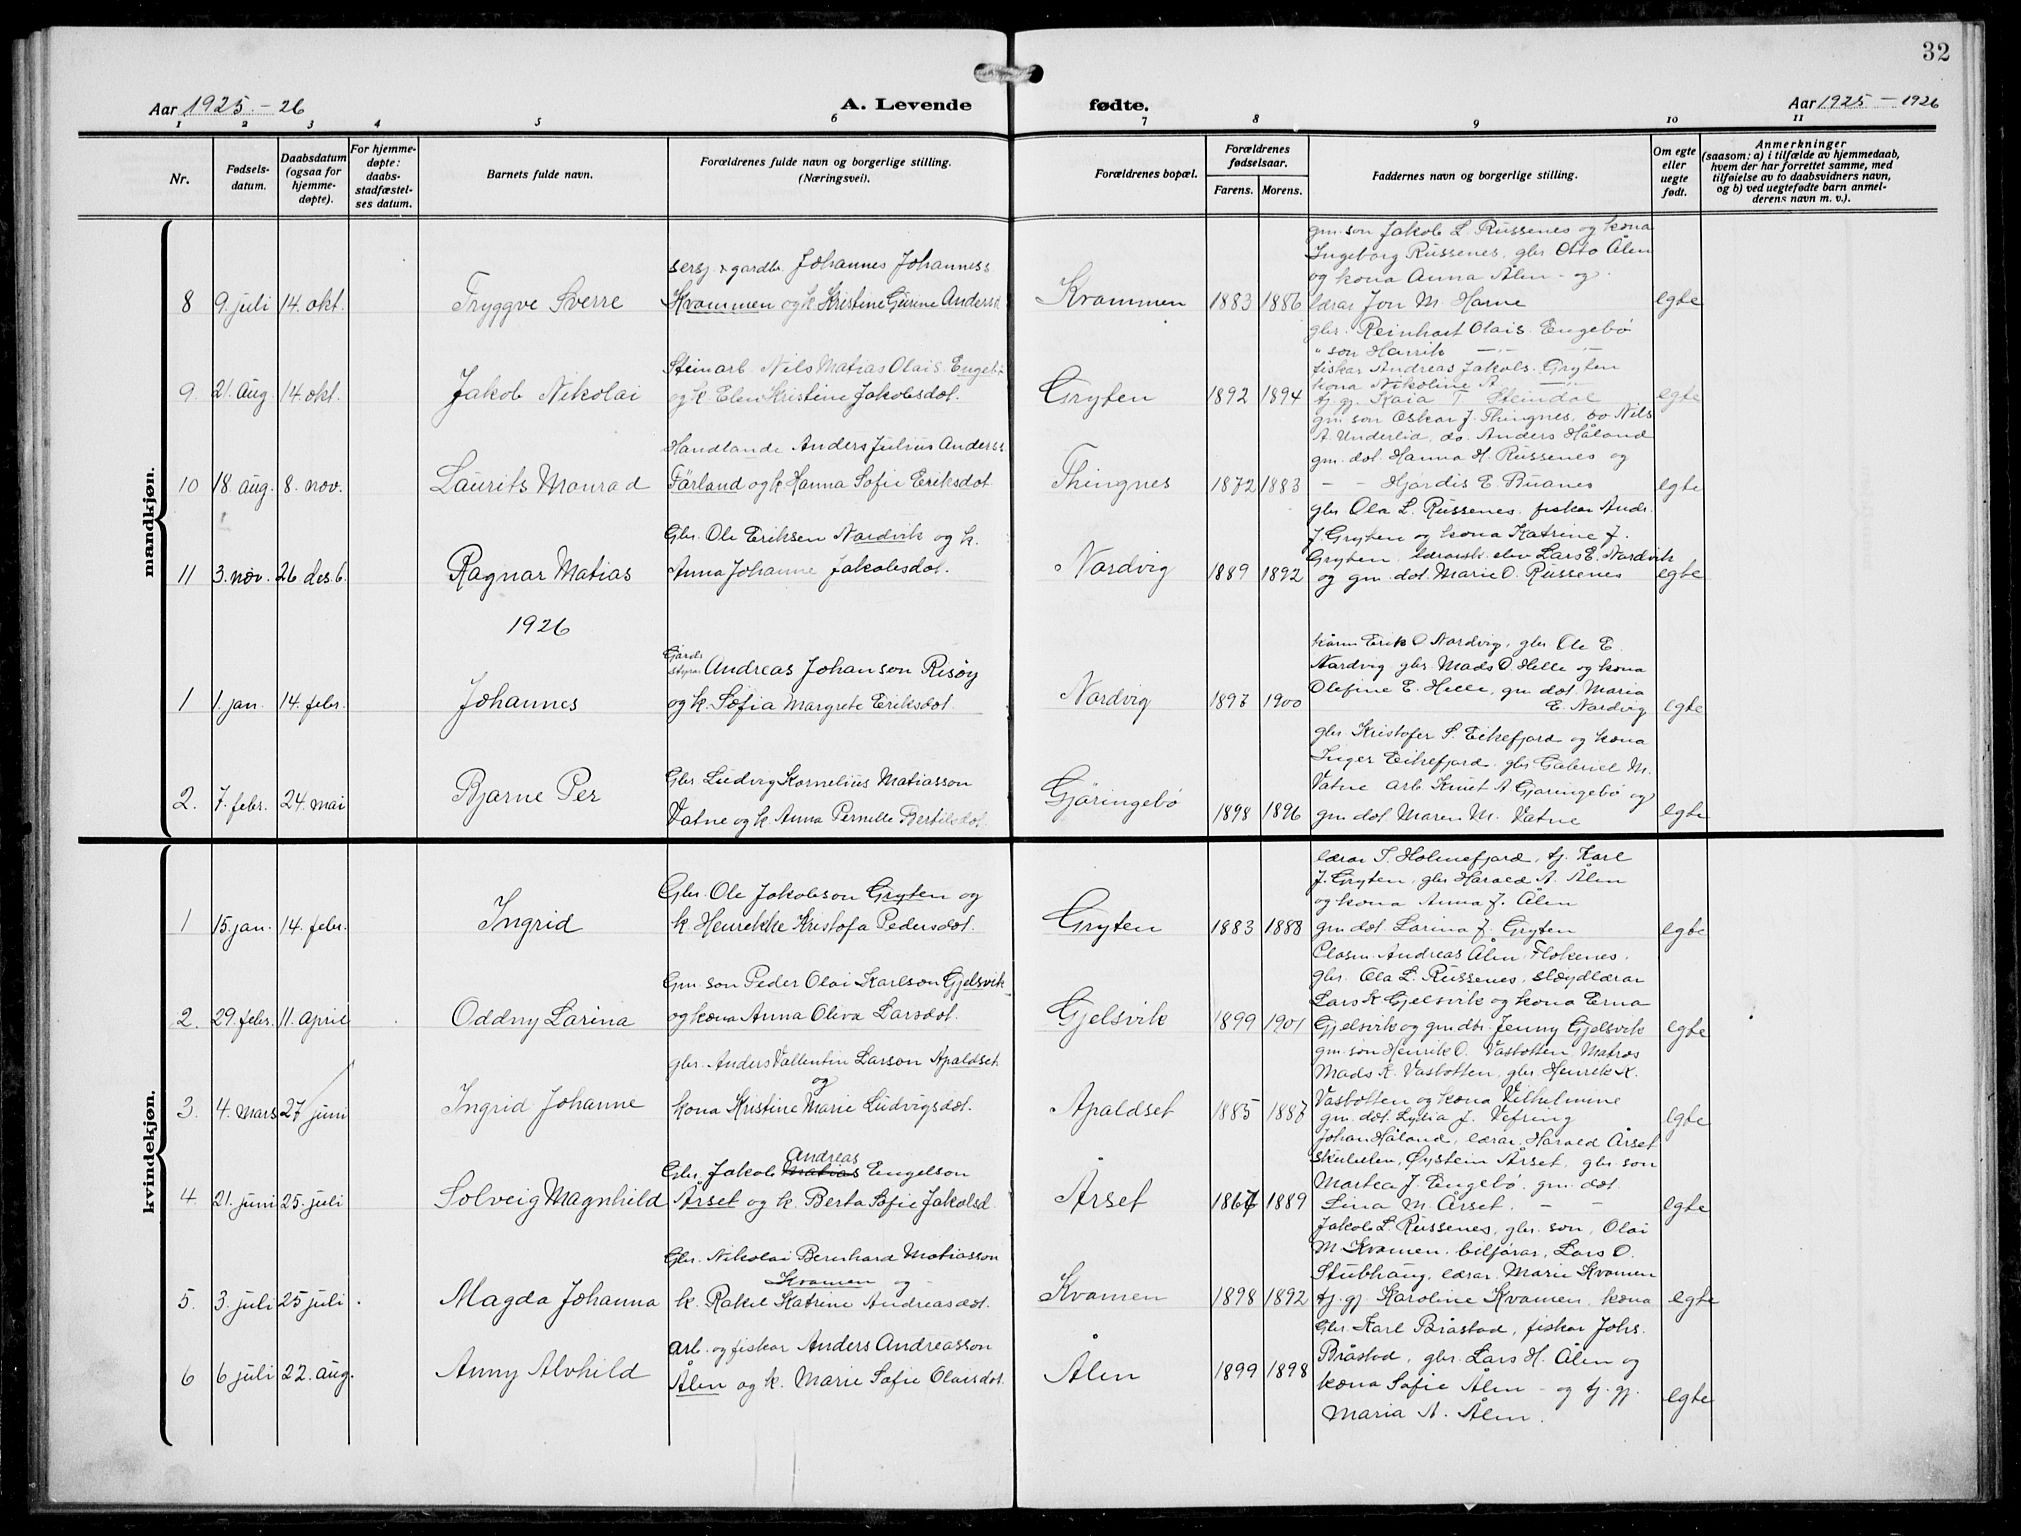 32
Aar 1925 - 26
A. Levende
fødte.
Aar 1925 - 1926
1 2 3 4 5 6 7 8 9 10 11
Nr.
Fødsels-
datum.
Daabsdatum
(ogsaa for
hjemme-
døpte).
For hjemme-
døpte:
daabs-
stadfæstel-
ses datum.
Barnets fulde navn.
Forældrenes fulde navn og borgerlige stilling.
(Næringsvei).
Forældrenes bopæl.
Forældrenes
fødselsaar.
Farens. Morens.
Faddernes navn og borgerlige stilling.
Om egte
eller
uegte
født.
Anmerkninger
(saasom: a) i tilfælde av hjemmedaab,
hvem der har forrettet samme, med
tilføielse av to daabsvidners navn,
og b) ved uegtefødte barn anmel-
derens navn m. v.).
mandkjøn.
8 9. juli 14. okt. Tryggve Sverre
sersj. & gardbr. Johannes Johanness.
Kvammen og k. Kristine Gurine Andersd.
Kvammen 1883 1886
gm. son Jakob L. Russenes og kona
Ingeborg Russenes, gbr Otto Ålen
og kona Anna Ålen - og
lærar Jon M. Harne
egte
9. 21. aug. 14. okt. Jakob Nikolai
Steinarb. Nils Matias Olais. Engebø
og k. Elen Kristine Jakobsdot.
Gryten 1892 1894
gbr. Reinhart Olais. Engebø
" son Henrik — " —
fiskar Andreas Jakobs. Gryten
kona Nikoline A — " —
tj. gj. Kaia T. Steindal
egte
10 18. aug. 8. nov. Laurits Monrad
Handlande Anders Julius Anderss.
Førland og k. Hanna Sofie Eriksdot.
Thingnes 1872 1883
gm. son Oskar J. Thingnes, do Nils
A. Underlid, do. Anders Håland
gm. dot. Hanna H. Russenes og
— — Hjørdis E. Buanes
egte
11 3. nov. 26 des 6. Ragnar Matias
Gbr. Ole Eriksen Nordvik og k.
Anna Johanne Jakobsdot.
Nordvig 1889 1892
gbr Ola L. Russenes, fiskar Andr.
J. Gryten og kona Katrine J.
Gryten. lærarsk. elev Lars E. Nordvik
og gm. dot. Marie O. Russenes
egte
1926
1 1. jan. 14. febr. Johannes
Gards
styrar Andreas Johanson Risöy
og k. Sofia Margrete Eriksdot.
Nordvig 1897 1900
kårm Erik O Nordvig, gbr Ole E.
Nordvig gbr Mads O. Helle og kona
Olefine E. Helle, gm. dot. Maria
E. Nordvig
egte
2. 7. febr. 24. mai Bjarne Per
Gbr Ludvig Kornelius Matiasson
Vatne og k. Anna Pernille Bertilsdot.
Gjöringebø 1898 1896
gbr. Kristofer S. Eikefjord og kona
Inger Eikefjord. gbr Gabriel M.
Vatne arb. Knut A Gjøringebø og
gm dot Maren M. Vatne
egte
kvindekjøn.
1 15. jan. 14. febr. Ingrid
Gbr. Ole Jakobson Gryten og
k. Henrikke Kristofa Pedersdot.
Gryten 1883 1888
lærar S. Holmefjord, tj. Karl
J. Gryten, gbr Harald A. Ålen
og kona Anna J. Ålen
gm dot Lorina J. Gryten
egte
2. 29. febr. 11. april Oddny Larina
Gm. son Peder Olai Karlson Gjelsvik
og kona Anna Oliva Larsdot.
Gjelsvik 1899 1901
Andreas Ålen Flokenes.
gbr. Ola L. Russenes, sløydlærar
Lars K Gjelsvik og kona Erna
Gjelsvik og gm dtr. Jenny Gjelsvik
egte
3. 4. mars 27 juni Ingrid Johanne
gbr. Anders Vallentin Larson Apaldset
og
kona Kristine Marie Ludvigsdot.
Apaldset 1885 1887
gm. son Henrik O. Vasbotten, Matros
Mads K. Vasbotten, gbr Henrik K.
Vasbotten og kona Vilhelmine
gm. dot. Lydia J. Vefring
egte
4. 21. juni 25. juli Solveig Magnhild
Andreas
Gbr. Jakob Matias Engelson
Årset og k. Berta Sofie Jakobsd.
Årset 1889
Johan Håland, lærar, Harald Årset
Øystein Årset, gbr. son
Martea J. Engebø. gm. dot.
Lina M. Årset. — —
egte
5. 3. juli 25 juli. Magda Johanna
Gbr. Nikolai Bernhard Matiasson
Kvamen og
k. Rakel Katrine Andreasdot.
Kvamen 1898 1892
Jakob L. Russenes, gbr. son, Olai
M. Kvamen, bilførar, Lars O.
Stubhaug, lærar. Marie Kvamen
tj. gj. Karoline Kvamen, kona
egte
6 6 juli 22. aug. Anny Alvhild
arb. og fiskar Anders Andreasson
Ålen og k. Marie Sofie Olaisdot.
Ålen 1899 1898
Gbr. Karl Bråstad, fiskar Johs.
Bråstad, gbr. Lars H. Ålen og
kona Sofie Ålen - og tj. gj.
Maria A. Ålen.
egte